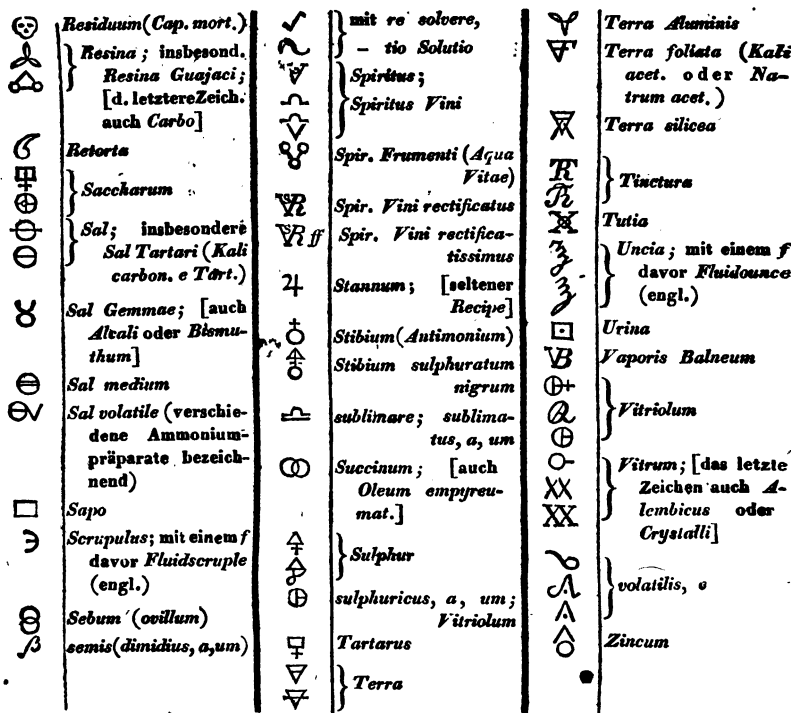 Residuum (Cap. mort.)
Resina; insbesond.
Resina Guajaci;
[d. letztere Zeich.
auch Carbo]
Retorta
Saccharum
Sal; insbesondere
Sal Tartari (Kali
carbon. e Tart.)
Sal Gemmae; [auch
Alcali oder Bismu-
thum]
Sal medium
Sal volatile (verschie-
dene Ammonium-
präparate bezeich-
nend)
Sapo
Scrupulus; mit einem f
davor Fluidscruple
(engl.)
Sebum (ovillum)
semis (dimidius, a, um)
mit re solvere,
– tio Solutio
Spiritus;
Spiritus Vini
Spir. Frumenti (Aqua
Vitae)
Spir. Vini rectificatus
ff Spir. Vini rectifica-
tissimus
Stannum; [seltener
Recipe]
Stibium (Antimonium)
Stibium sulphuratum
nigrum
sublimare; sublima-
tus, a, um
Succinum; [auch
Oleum empyreu-
mat.]
Sulphur
sulphuricus, a, um;
Vitriolum
Tartarus
Terra
Terra Aluminis
Terra foliata (Kali
acet. oder Na-
trum acet.)
Terra silicea
Tinctura
Tutia
Uncia; mit einem f
davor Fluidounce
(engl.)
Urina
VB Vaporis Balneum
Vitriolum
Vitrum; [das letzte
XX Zeichen auch A-
XX lembicus oder
Crystalli]
volatilis, e
Zincum